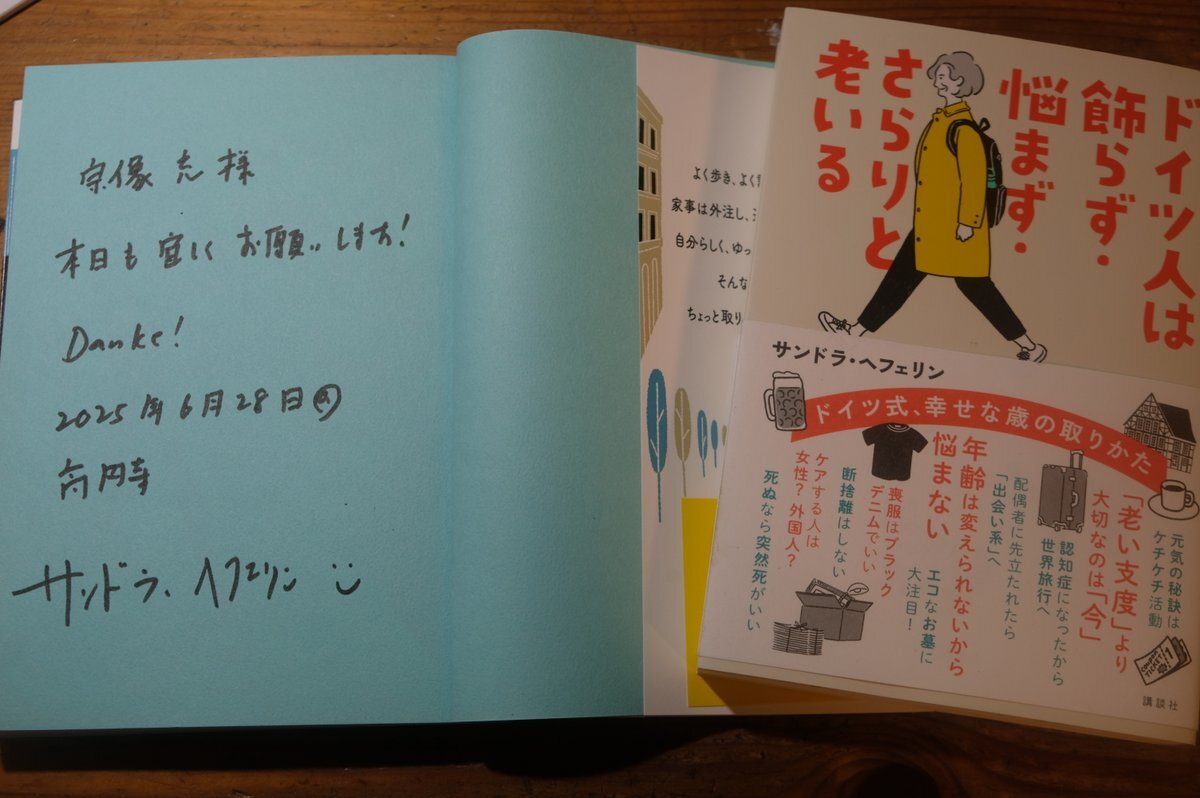 宗像充様
本日も宜しくお願いします!
Danke!
2025年6月28日㊏
高円寺
サンドラ・ヘフェリン
よく歩き、よく
家事は外注し、
自分らしく、ゆっ
そんな
ちょっと取り
ドイツ人は
飾らず・
悩まず・
さらりと
老いる
サンドラ・ヘフェリン
ドイツ式、幸せな歳の取りかた
元気の秘訣は
ケチケチ活動
「老い支度」より
大切なのは「今」
認知症になったから
世界旅行へ
配偶者に先立たれたら
「出会い系」へ
年齢は変えられないから
悩まない
エコなお墓に
大注目!
喪服はブラック
デニムでいい
断捨離はしない
ケアする人は
女性?外国人?
死ぬなら突然死がいい
COUPON
TICKET
1
講談社